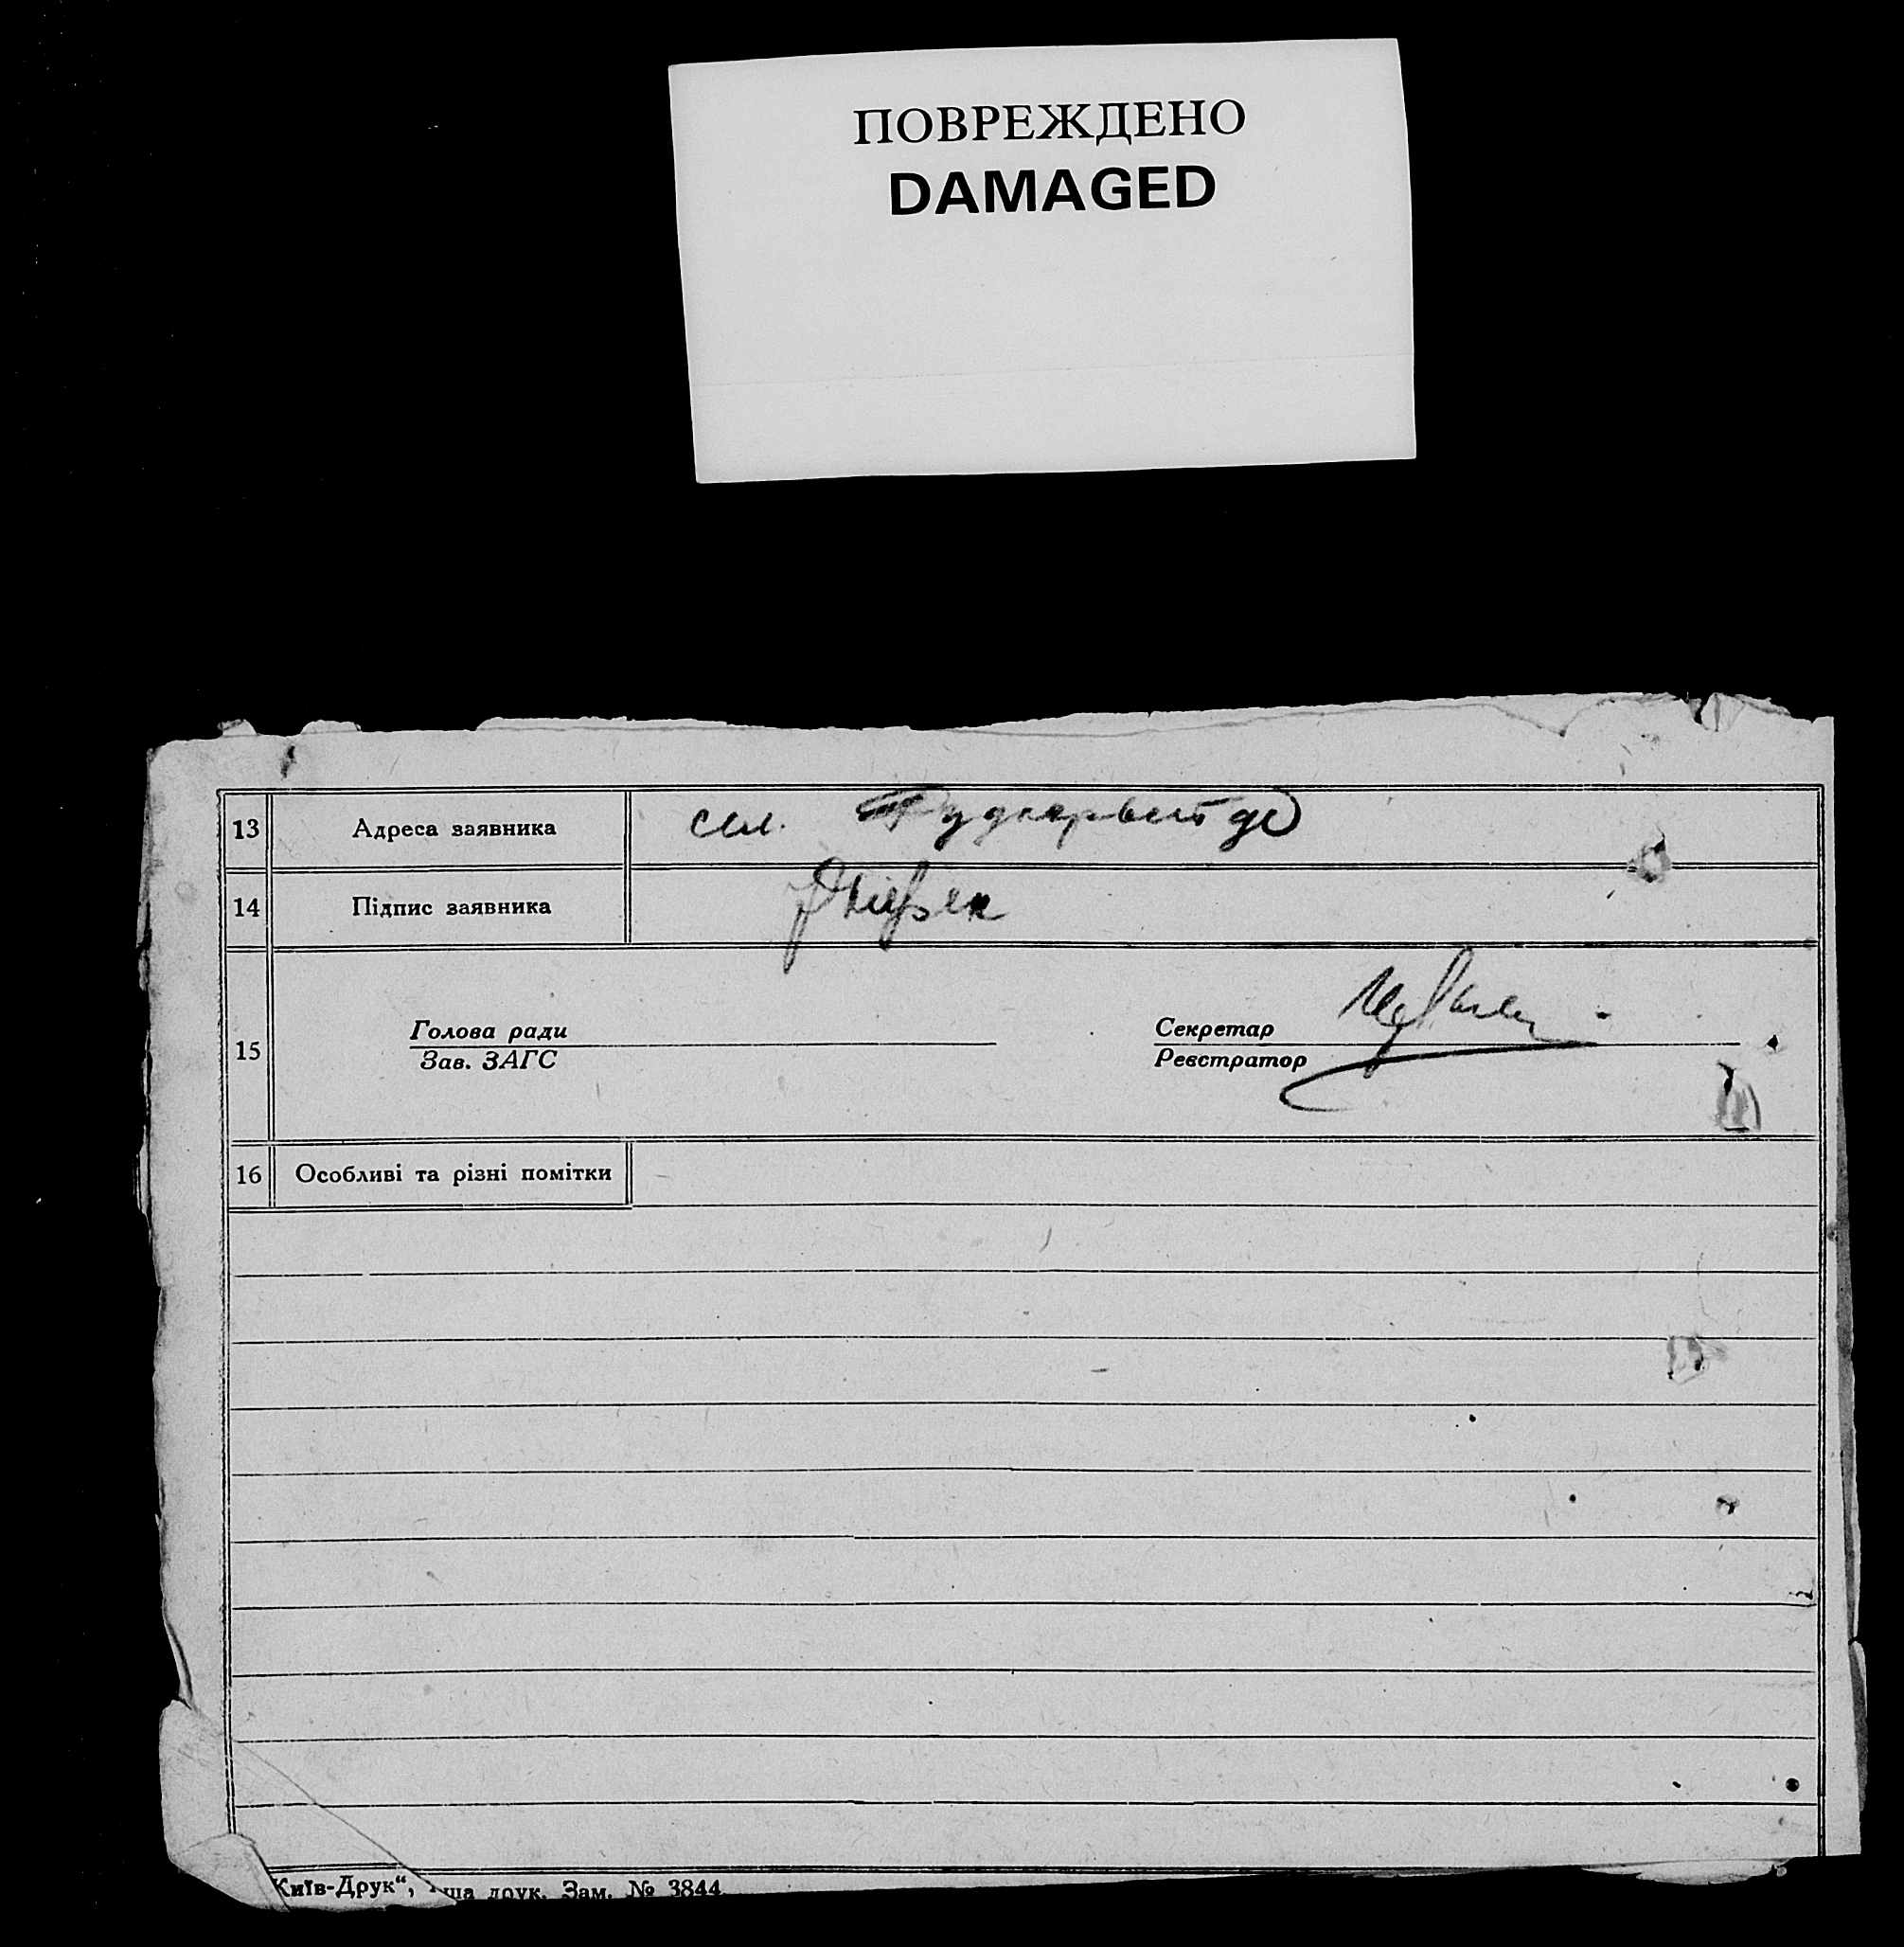 ПОВРЕЖДЕНО
DAMAGED
13 Адреса заявника сел.
14 Підпис заявника
15 Голова ради
Зав. ЗАГС
Секретар
Реєстратор
16 Особливі та різні помітки
Київ-Друк“, друк. Зам. № 3844